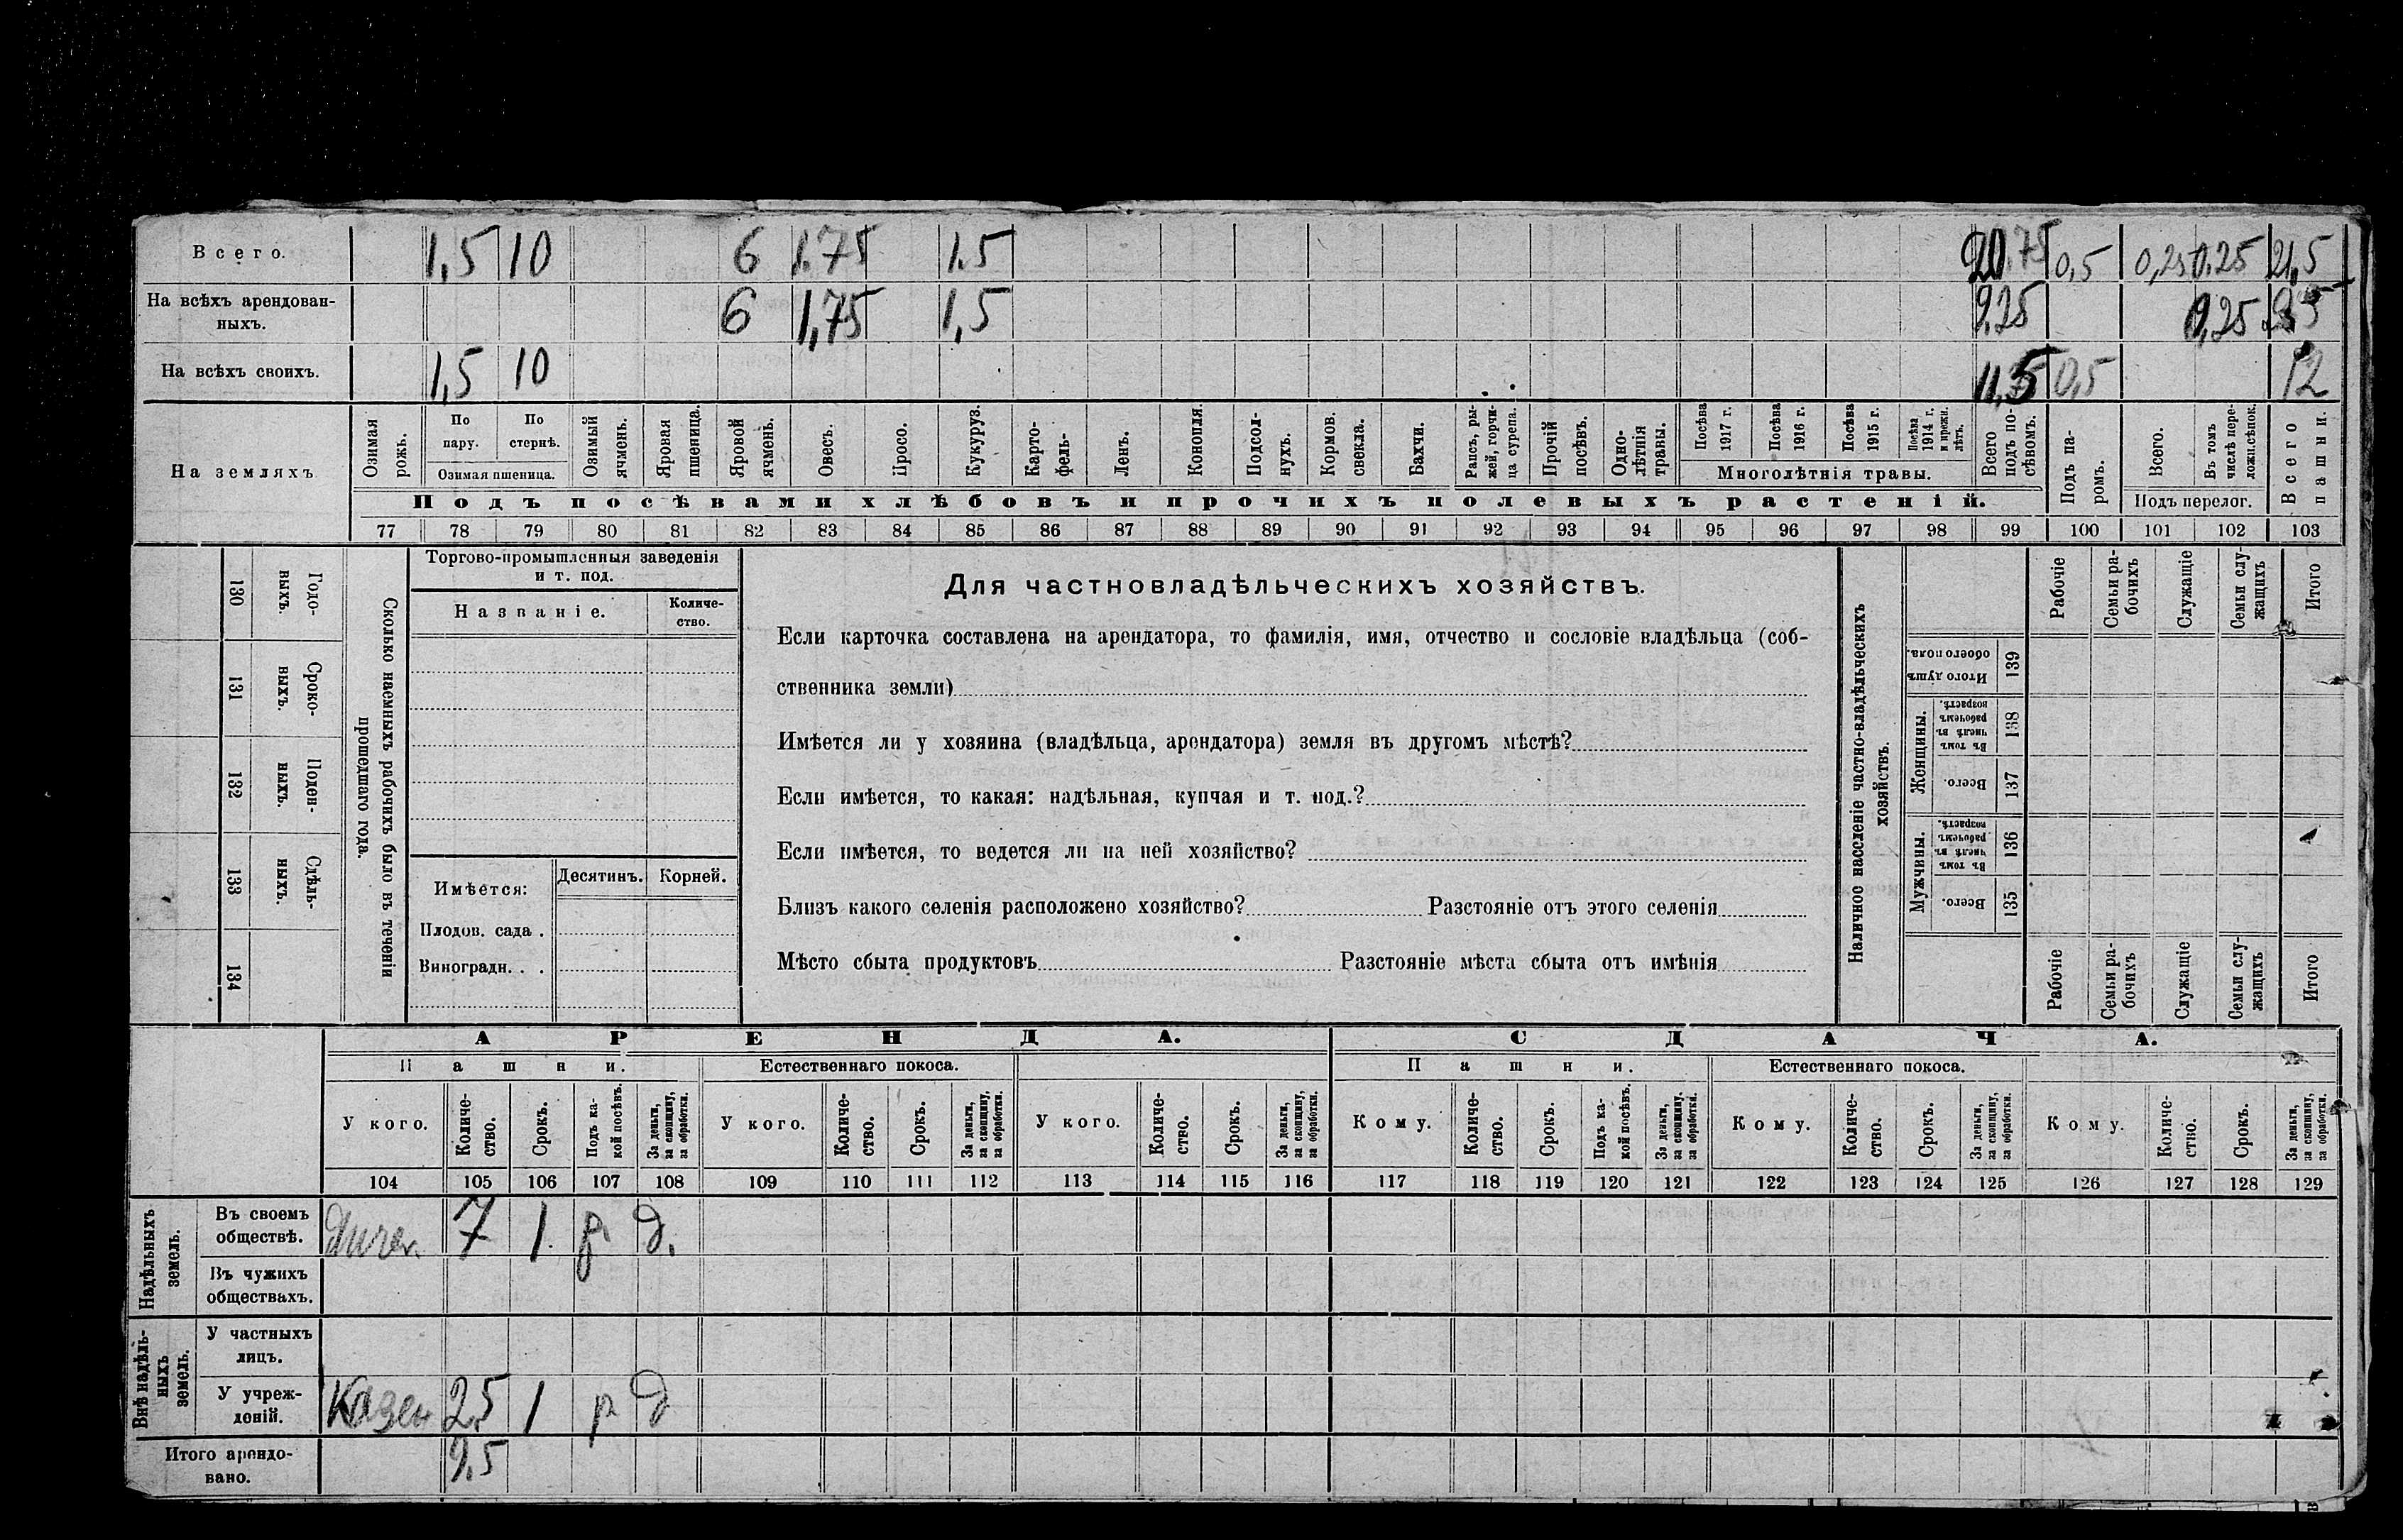 Всего. 1,5 10 6 1.75 1.5 20.75 0,5 0,25 0.25 21,5
На всѣхъ арендован-
ныхъ. 6 1,75 1,5 9.25 0,25 9,5
На всѣхъ своихъ. 1,5 10 11,5 0,5 12
На земляхъ
Озимая рожь.
По пару.
По стернѣ.
Озимая пшеница.
Озимый ячмень.
Яровая пшеница.
Яровой ячмень.
Овесъ.
Просо.
Кукуруз.
Карто-
фель-
Ленъ.
Конопля.
Подсол-
нухъ.
Кормов.
свекла.
Бахчи.
Рапсъ, ры-
жей, горчи-
ца сурепа.
Прочій
посѣвъ.
Одно-
лѣтнія
травы.
Посѣва
1917 г.
Посѣва
1916 г.
Посѣва
1915 г.
Посѣва
1914 г.
и прежн.
лѣтъ.
Многолѣтнія травы.
Всего
подъ по-
сѣвомъ.
Подъ па-
ромъ.
Всего.
Въ томъ
числѣ пере-
ложн.сѣнок.
Подъ перелог.
Всего
пашни.
Подъ посѣвами хлѣбовъ и прочихъ полевыхъ растеній.
77 78 79 80 81 82 83 84 85 86 87 88 89 90 91 92 93 94 95 96 97 98 99 100 101 102 103
Годо-
выхъ.
130
Сроко-
ныхъ.
131
Поден-
ныхъ.
132
Сдѣль-
ныхъ.
133
134
Сколько наемныхъ рабочихъ было въ теченіи
прошедшаго года.
Торгово-промышленныя заведенія
и т. под.
Названіе.
Количе-
ство.
Имѣется:
Десятинъ.
Корней.
Плодов. сада .
Виноградн. . .
Для частновладѣльческихъ хозяйствъ.
Если карточка составлена на арендатора, то фамилія, имя, отчество и сословіе владѣльца (соб-
ственника земли)
Имѣется ли у хозяина (владѣльца, арендатора) земля въ другомъ мѣстѣ?
Если имѣется, то какая: надѣльная, купчая и т. под.?
Если имѣется, то ведется ли на ней хозяйство?
Близъ какого селенія расположено хозяйство? Разстояніе отъ этого селенія
Мѣсто сбыта продуктовъ Разстояніе мѣста сбыта отъ имѣнія
Наличное населеніе частно-владѣльческихъ
хозяйствъ.
Рабочіе
Семьи ра-
бочихъ
Служащіе
Семьи слу-
жащихъ
Итого
Итого душъ
обоего пола.
139
Женщины.
Въ томъ
числѣ въ
рабочемъ
возрастѣ.
138
Всего.
137
Мужчины.
Въ томъ
числѣ въ
рабочемъ
возрастѣ.
136
Всего.
135
Рабочіе
Семьи ра-
бочихъ
Служащіе
Семьи слу-
жащихъ
Итого
АРЕНДА. СДАЧА.
Пашни. Естественнаго покоса. Пашни. Естественнаго покоса.
У кого.
Количе-
ство.
Срокъ.
Подъ ка-
кой посѣвъ.
За деньги,
за скопщину,
за обработки.
У кого.
Количе-
ство.
Срокъ.
За деньги,
за скопщину,
за обработки.
У кого.
Количе-
ство.
Срокъ.
За деньги,
за скопщину,
за обработки.
Кому.
Количе-
ство.
Срокъ.
Подъ ка-
кой посѣвъ.
За деньги,
за скопщину,
за обработки.
Кому.
Количе-
ство.
Срокъ.
За деньги,
за скопщину,
за обработки.
Кому.
Количе-
ство.
Срокъ.
За деньги,
за скопщину,
за обработки.
104 105 106 107 108 109 110 111 112 113 114 115 116 117 118 119 120 121 122 123 124 125 126 127 128 129
Надѣльныхъ
земель.
Въ своемъ
обществѣ. 7 1. р. д.
Въ чужихъ
обществахъ.
Внѣ надѣль-
ныхъ
земель.
У частныхъ
лицъ.
У учреж-
деній. Казен 2,5 1 р д
Итого арендо-
вано. 9.5